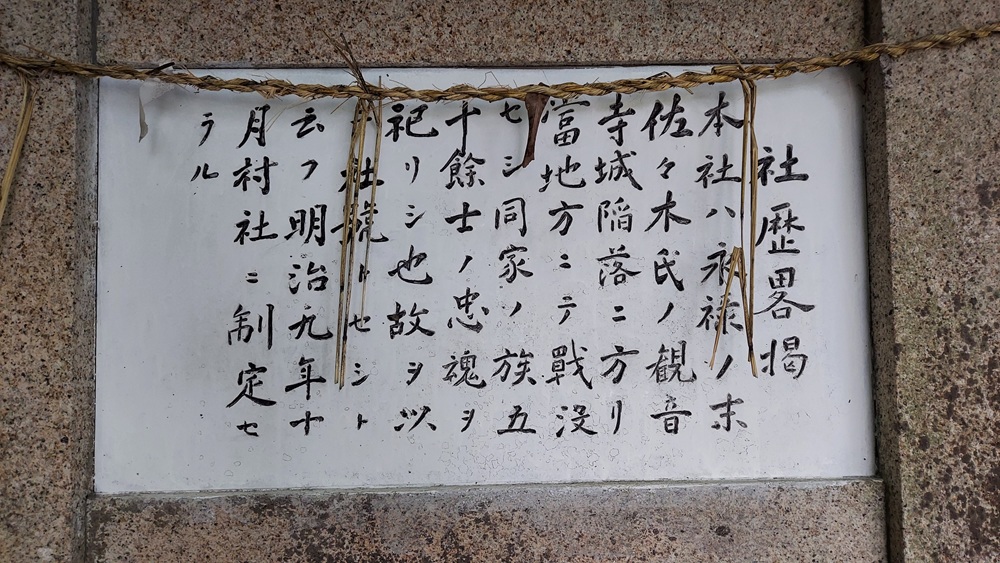 社歴畧掲
本社ハ永禄ノ末
佐々木氏ノ観音
寺城陥落ニ方リ
當地方ニテ戦没
セシ同家ノ族五
十餘士ノ忠魂ヲ
祀リシ也故ヲ以
社號トセシト
云フ明治九年十
月村社ニ制定セ
ラル